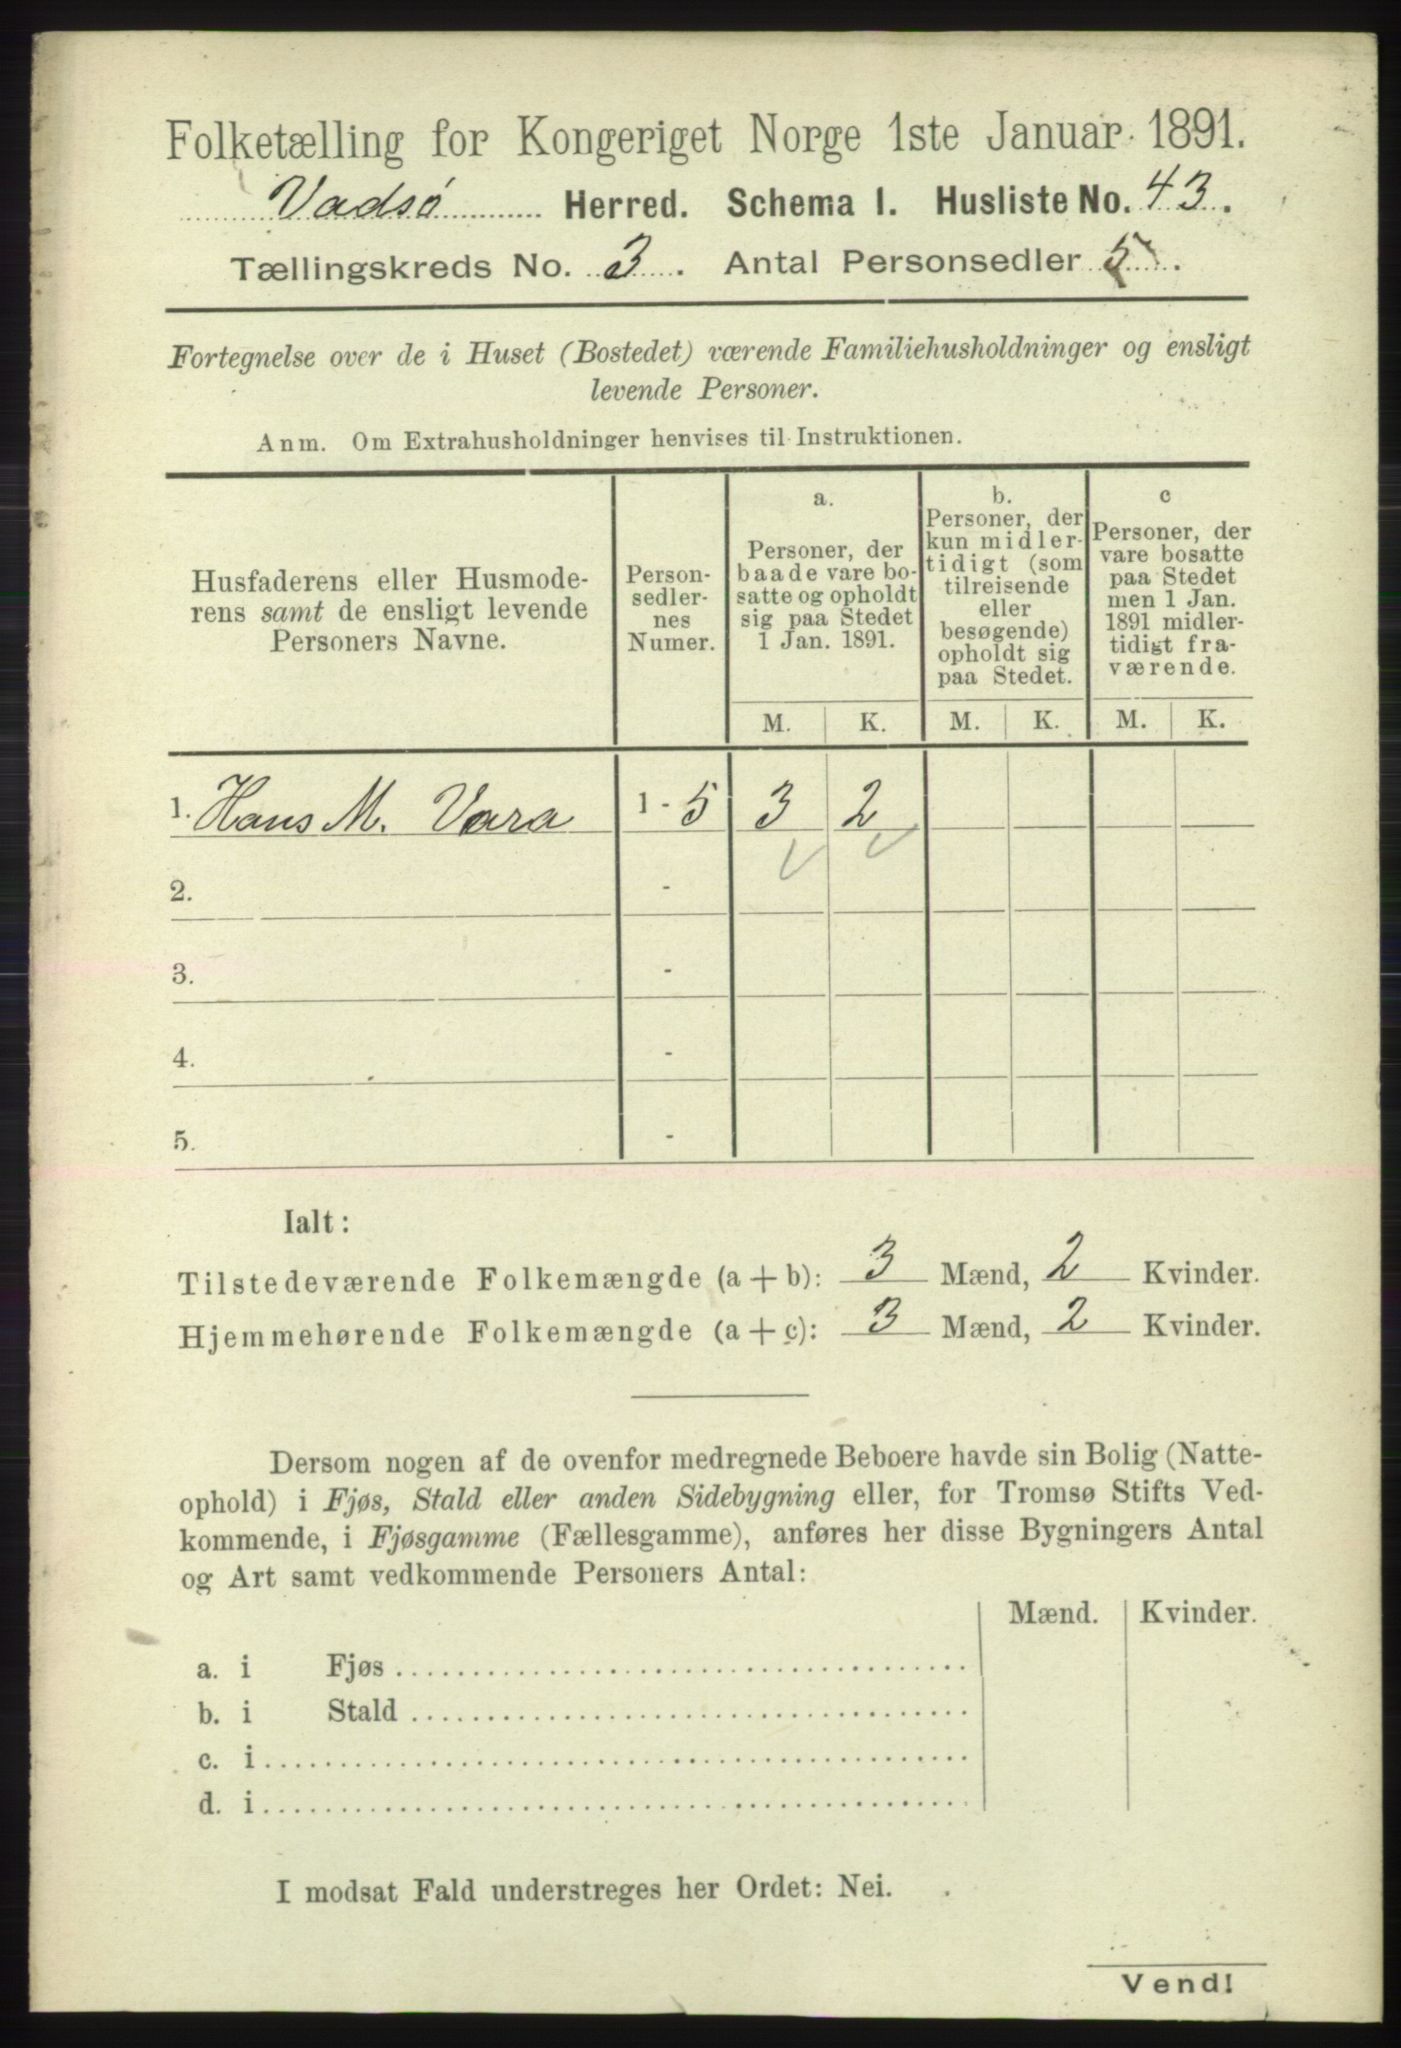 Folketælling for Kongeriget Norge 1ste Januar 1891.
Vadsø Herred. Schema 1. Husliste No. 43.
Tællingskreds No. 3. Antal Personsedler 5.
Fortegnelse over de i Huset (Bostedet) værende Familiehusholdninger og ensligt
levende Personer.
Anm. Om Extrahusholdninger henvises til Instruktionen.
Husfaderens eller Husmode-
rens samt de ensligt levende
Personers Navne.
Person-
sedler-
nes
Numer.
a.
Personer, der
baade vare bo-
satte og opholdt
sig paa Stedet
1 Jan. 1891.
b.
Personer, der
kun midler-
tidigt (som
tilreisende
eller
besøgende)
opholdt sig
paa Stedet.
c
Personer, der
vare bosatte
paa Stedet
men 1 Jan.
1891 midler-
tidigt fra-
værende.
M. K. M. K. M. K.
1. Hans M. Vara 1 - 5 3 2
2. -
3. -
4. -
5. -
Ialt:
Tilstedeværende Folkemængde (a + b): 3 Mænd, 2 Kvinder.
Hjemmehørende Folkemængde (a + c): 3 Mænd, 2 Kvinder.
Dersom nogen af de ovenfor medregnede Beboere havde sin Bolig (Natte-
ophold) i Fjøs, Stald eller anden Sidebygning eller, for Tromsø Stifts Ved-
kommende, i Fjøsgamme (Fællesgamme), anføres her disse Bygningers Antal
og Art samt vedkommende Personers Antal:
Mænd. Kvinder.
a. i Fjøs
b. i Stald
c. i
d. i
I modsat Fald understreges her Ordet: Nei.
Vend!